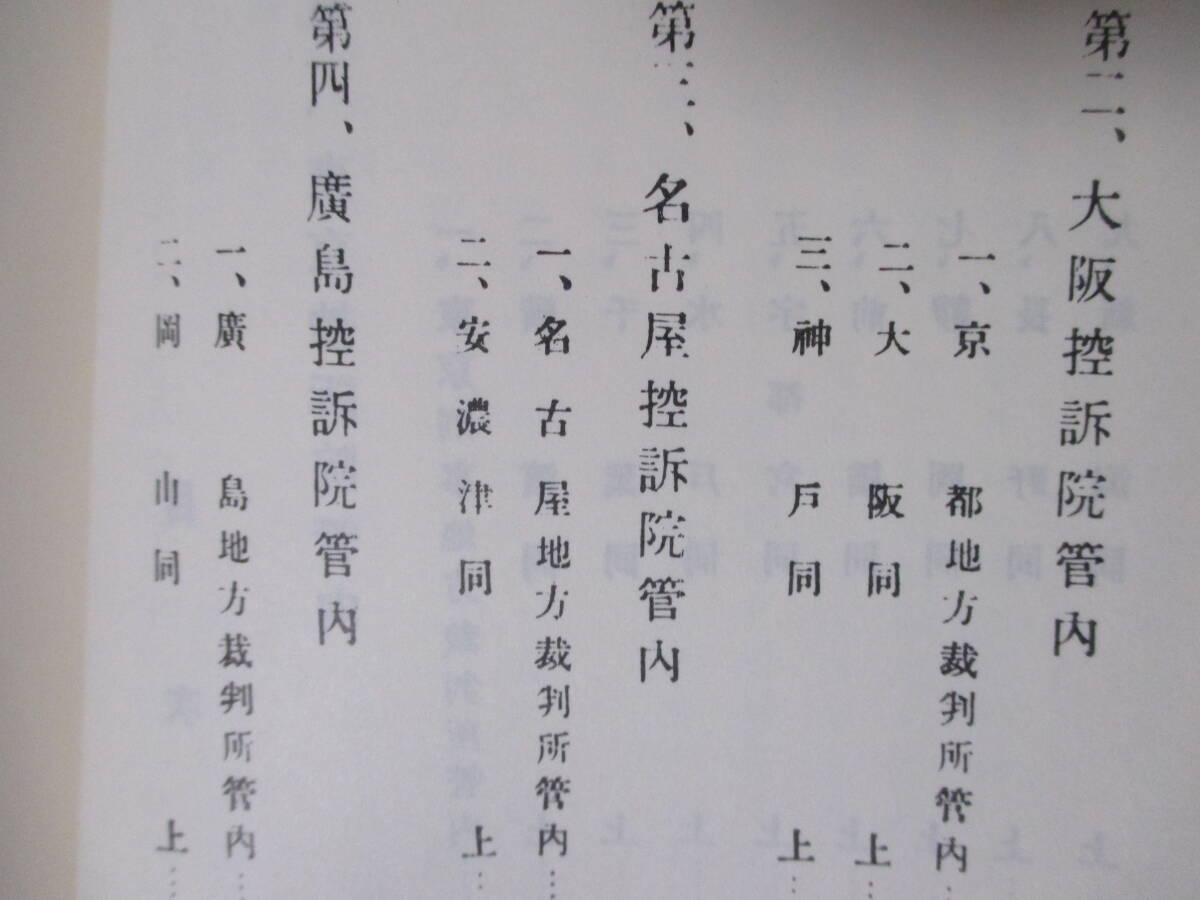 第二、大阪控訴院管内
一、京都地方裁判所管内…
二、大阪同上…
三、神戸同上…
第三、名古屋控訴院管内
一、名古屋地方裁判所管内…
二、安濃津同上…
第四、廣島控訴院管内
一、廣島地方裁判所管内…
二、岡山同上…